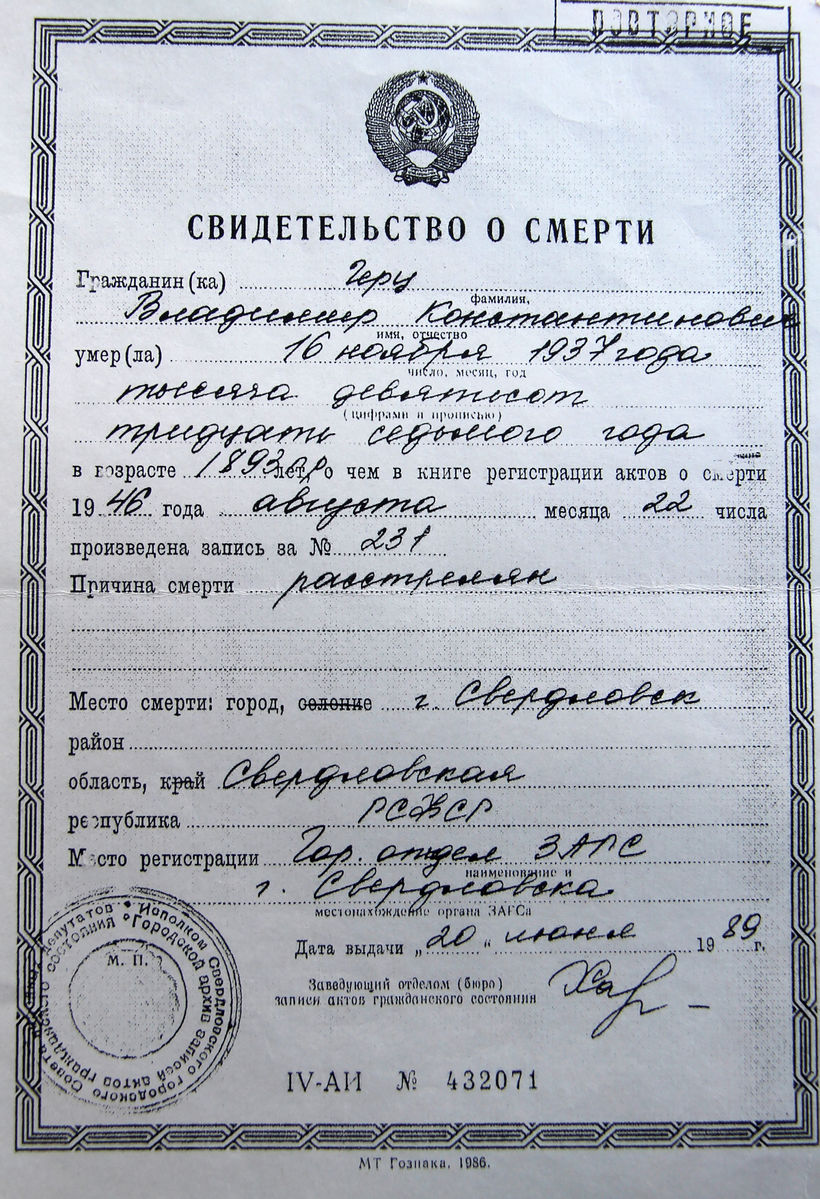 ПОВТОРНОЕ
СВИДЕТЕЛЬСТВО О СМЕРТИ
Гражданин (ка) Герц
фамилия,
Владимир Константинович
имя, отчество
умер (ла) 16 ноября 1937 года
число, месяц, год
тысяча девятьсот
(цифрами и прописью)
тридцать седьмого года
в возрасте 1893 г.р. лет, о чем в книге регистрации актов о смерти
19 46 года августа месяца 22 числа
произведена запись за № 231
Причина смерти расстрелян
Место смерти: город, селение г. Свердловск
район
область, край Свердловская
республика РСФСР
Место регистрации Гор. отдел ЗАГС
наименование и
г. Свердловска
местонахождение органа ЗАГСа
Дата выдачи „20“ июня 19 89 г.
Заведующий отделом (бюро)
записи актов гражданского состояния
М. П.
Исполком Свердловского городского Совета депутатов
Городской архив записей актов гражданского состояния
IV-АИ № 432071
МТ Гознака. 1986.